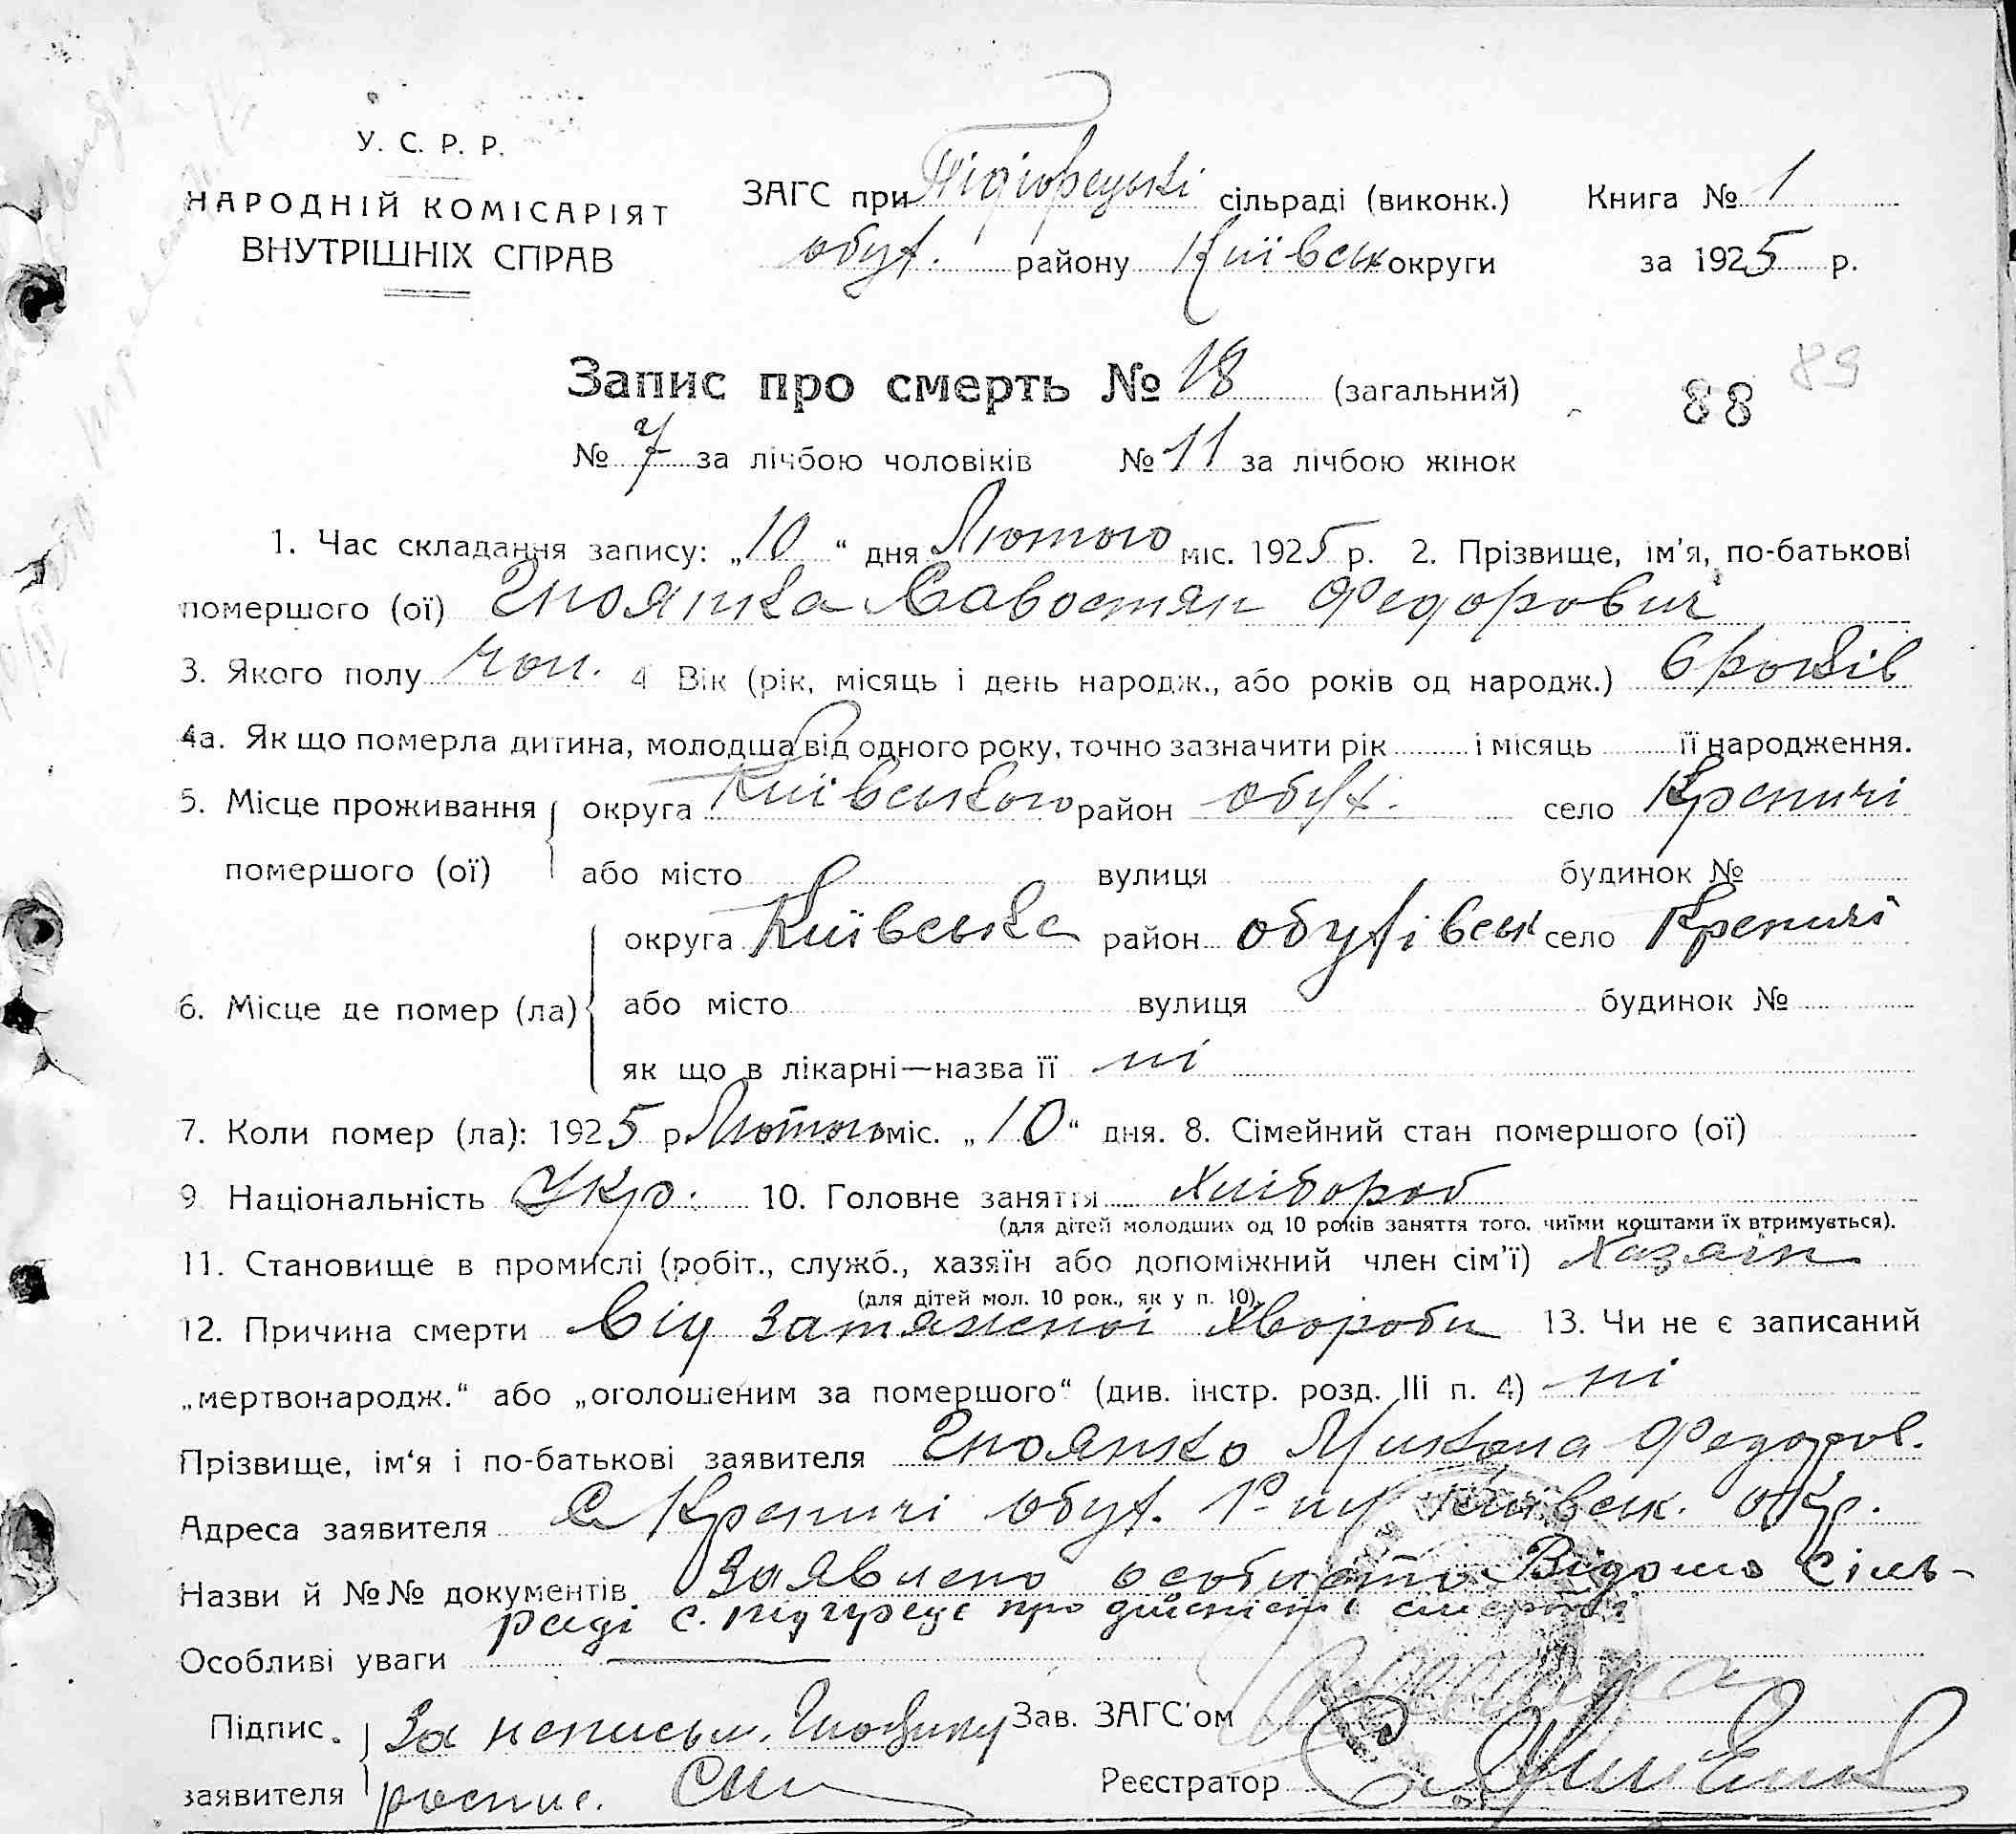 У. С. Р. Р.
НАРОДНІЙ КОМІСАРІЯТ
ВНУТРІШНІХ СПРАВ
ЗАГС при Підгорецькі сільраді (виконк.) Книга № 1
обух. району Київськ округи за 1925 р.
Запис про смерть № 18 (загальний) 88 89
№ 7 за лічбою чоловіків № 11 за лічбою жінок
1. Час складання запису: „10“ дня Лютого міс. 1925 р. 2. Прізвище, ім'я, по-батькові
помершого (ої) Гноянка Савостян Федорович
3. Якого полу чол. 4 Вік (рік, місяць і день народж., або років од народж.) 6 років
4а. Як що померла дитина, молодша від одного року, точно зазначити рік і місяць її народження.
5. Місце проживання округа Київського район обух. село Креничі
помершого (ої) або місто вулиця будинок №
округа Київська район обухівськ село Креничі
6. Місце де помер (ла) або місто вулиця будинок №
як що в лікарні—назва її ні
7. Коли помер (ла): 1925 р. Лютого міс. „10“ дня. 8. Сімейний стан помершого (ої)
9 Національність Укр. 10. Головне заняття Хлібороб
(для дітей молодших од 10 років заняття того, чиїми коштами їх втримується).
11. Становище в промислі (робіт., служб., хазяїн або допоміжний член сім'ї) Хазяїн
(для дітей мол. 10 рок., як у п. 10).
12. Причина смерти Від затяжної хвороби 13. Чи не є записаний
„мертвонародж.“ або „оголошеним за помершого“ (див. інстр. розд. III п. 4) ні
Прізвище, ім'я і по-батькові заявителя Гноянко Микола Федоров.
Адреса заявителя С Креничі обух. р-ну Київськ. окр.
Назви й №№ документів Заявлено особисто Відомо сіль-
раді с. Підгірці про дійсність смерті
Особливі уваги
Підпис за неписьм. Зав. ЗАГС'ом
заявителя роспис. Реєстратор